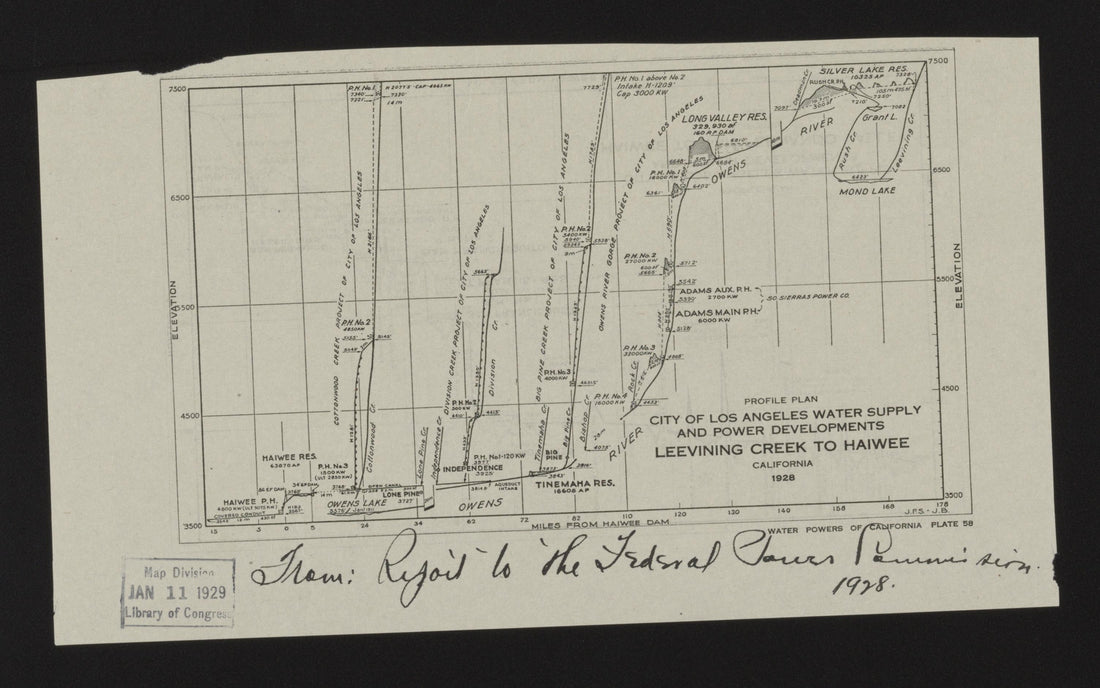 7500
P.H. No.1
7340'
7321'
7220'
14 m
7725'
P.H. No.1 above No.2
Intake H-1209'
Cap 3000 KW
SILVER LAKE RES.
RUSH CR. P.H.
7097'
7210'
7082
Grant L.
7500
LONG VALLEY RES.
329,930 af
160 FT. DAM
RIVER
Rush Cr.
Leevining Cr.
6810'
6648
6402'
6361'
OWENS
P.H. No.1
6423'
MONO LAKE
6500
6500
COTTONWOOD CREEK PROJECT OF CITY OF LOS ANGELES
DIVISION CREEK PROJECT OF CITY OF LOS ANGELES
BIG PINE CREEK PROJECT OF CITY OF LOS ANGELES
OWENS RIVER GORGE PROJECT OF CITY OF LOS ANGELES
P.H. No.2
P.H. No.2
27000 KW
5712'
5542'
ADAMS AUX. P.H.
2700 KW
SO SIERRAS POWER CO.
ADAMS MAIN P.H.
6000 KW
5128'
ELEVATION
ELEVATION
5500
5500
P.H. No.2
5145'
Cottonwood Cr.
Division Cr.
P.H. No.3
32000 KW
Rock Cr.
P.H. No.3
4000 KW
P.H. No.4
16000 KW
4500
4500
P.H. No.2
4415'
4075'
RIVER
PROFILE PLAN
CITY OF LOS ANGELES WATER SUPPLY
AND POWER DEVELOPMENTS
LEEVINING CREEK TO HAIWEE
CALIFORNIA
1928
Lone Pine Cr.
Independence Cr.
Tinemaha Cr.
Big Pine Cr.
Bishop Cr.
HAIWEE RES.
63870 AF
P.H. No.3
1500 KW
P.H. No.1-120 KW
INDEPENDENCE
3925'
BIG
PINE
TINEMAHA RES.
16605 AF
AQUEDUCT
INTAKE
LONE PINE
3727
HAIWEE P.H.
COVERED CONDUIT
OWENS LAKE
OWENS
3500
3500
15 3 0 5 24 34 62 72 82 110 120 130 140 158 168 178
MILES FROM HAIWEE DAM
J.F.S.-J.B.
WATER POWERS OF CALIFORNIA PLATE 58
From: Report to the Federal Power Commission.
1928.
Map Division
JAN 11 1929
Library of Congress